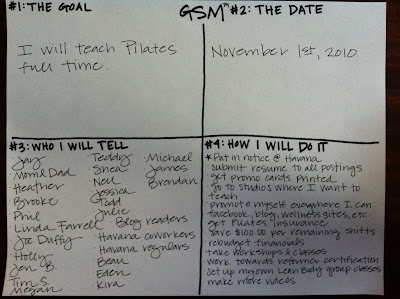 #1: THE GOAL
GSM™
#2: THE DATE
I will teach Pilates
full time.
November 1st, 2010
#3: WHO I WILL TELL
Jay
Mom & Dad
Heather
Brooke
Phil
Linda Farrell
Joe Duffy
Holly
Jen B.
Tim S.
Megan
Teddy
Shea
Neil
Jessica
Todd
Julie
· Blog readers
· Havana coworkers
· Havana regulars
Beau
Eden
Kira
· Michael
James
Brendan
#4: HOW I WILL DO IT
* Put in notice @ Havana
submit resume to all postings
get promo cards printed
go to studios where I want to
teach
promote myself everywhere I can
facebook, blog, wellness sites, etc.
get Pilates insurance
save $100.00 per remaining shifts
rebudget financials
take workshops & classes
work towards reformer certification
set up mg own Lean Body group classes
make more videos